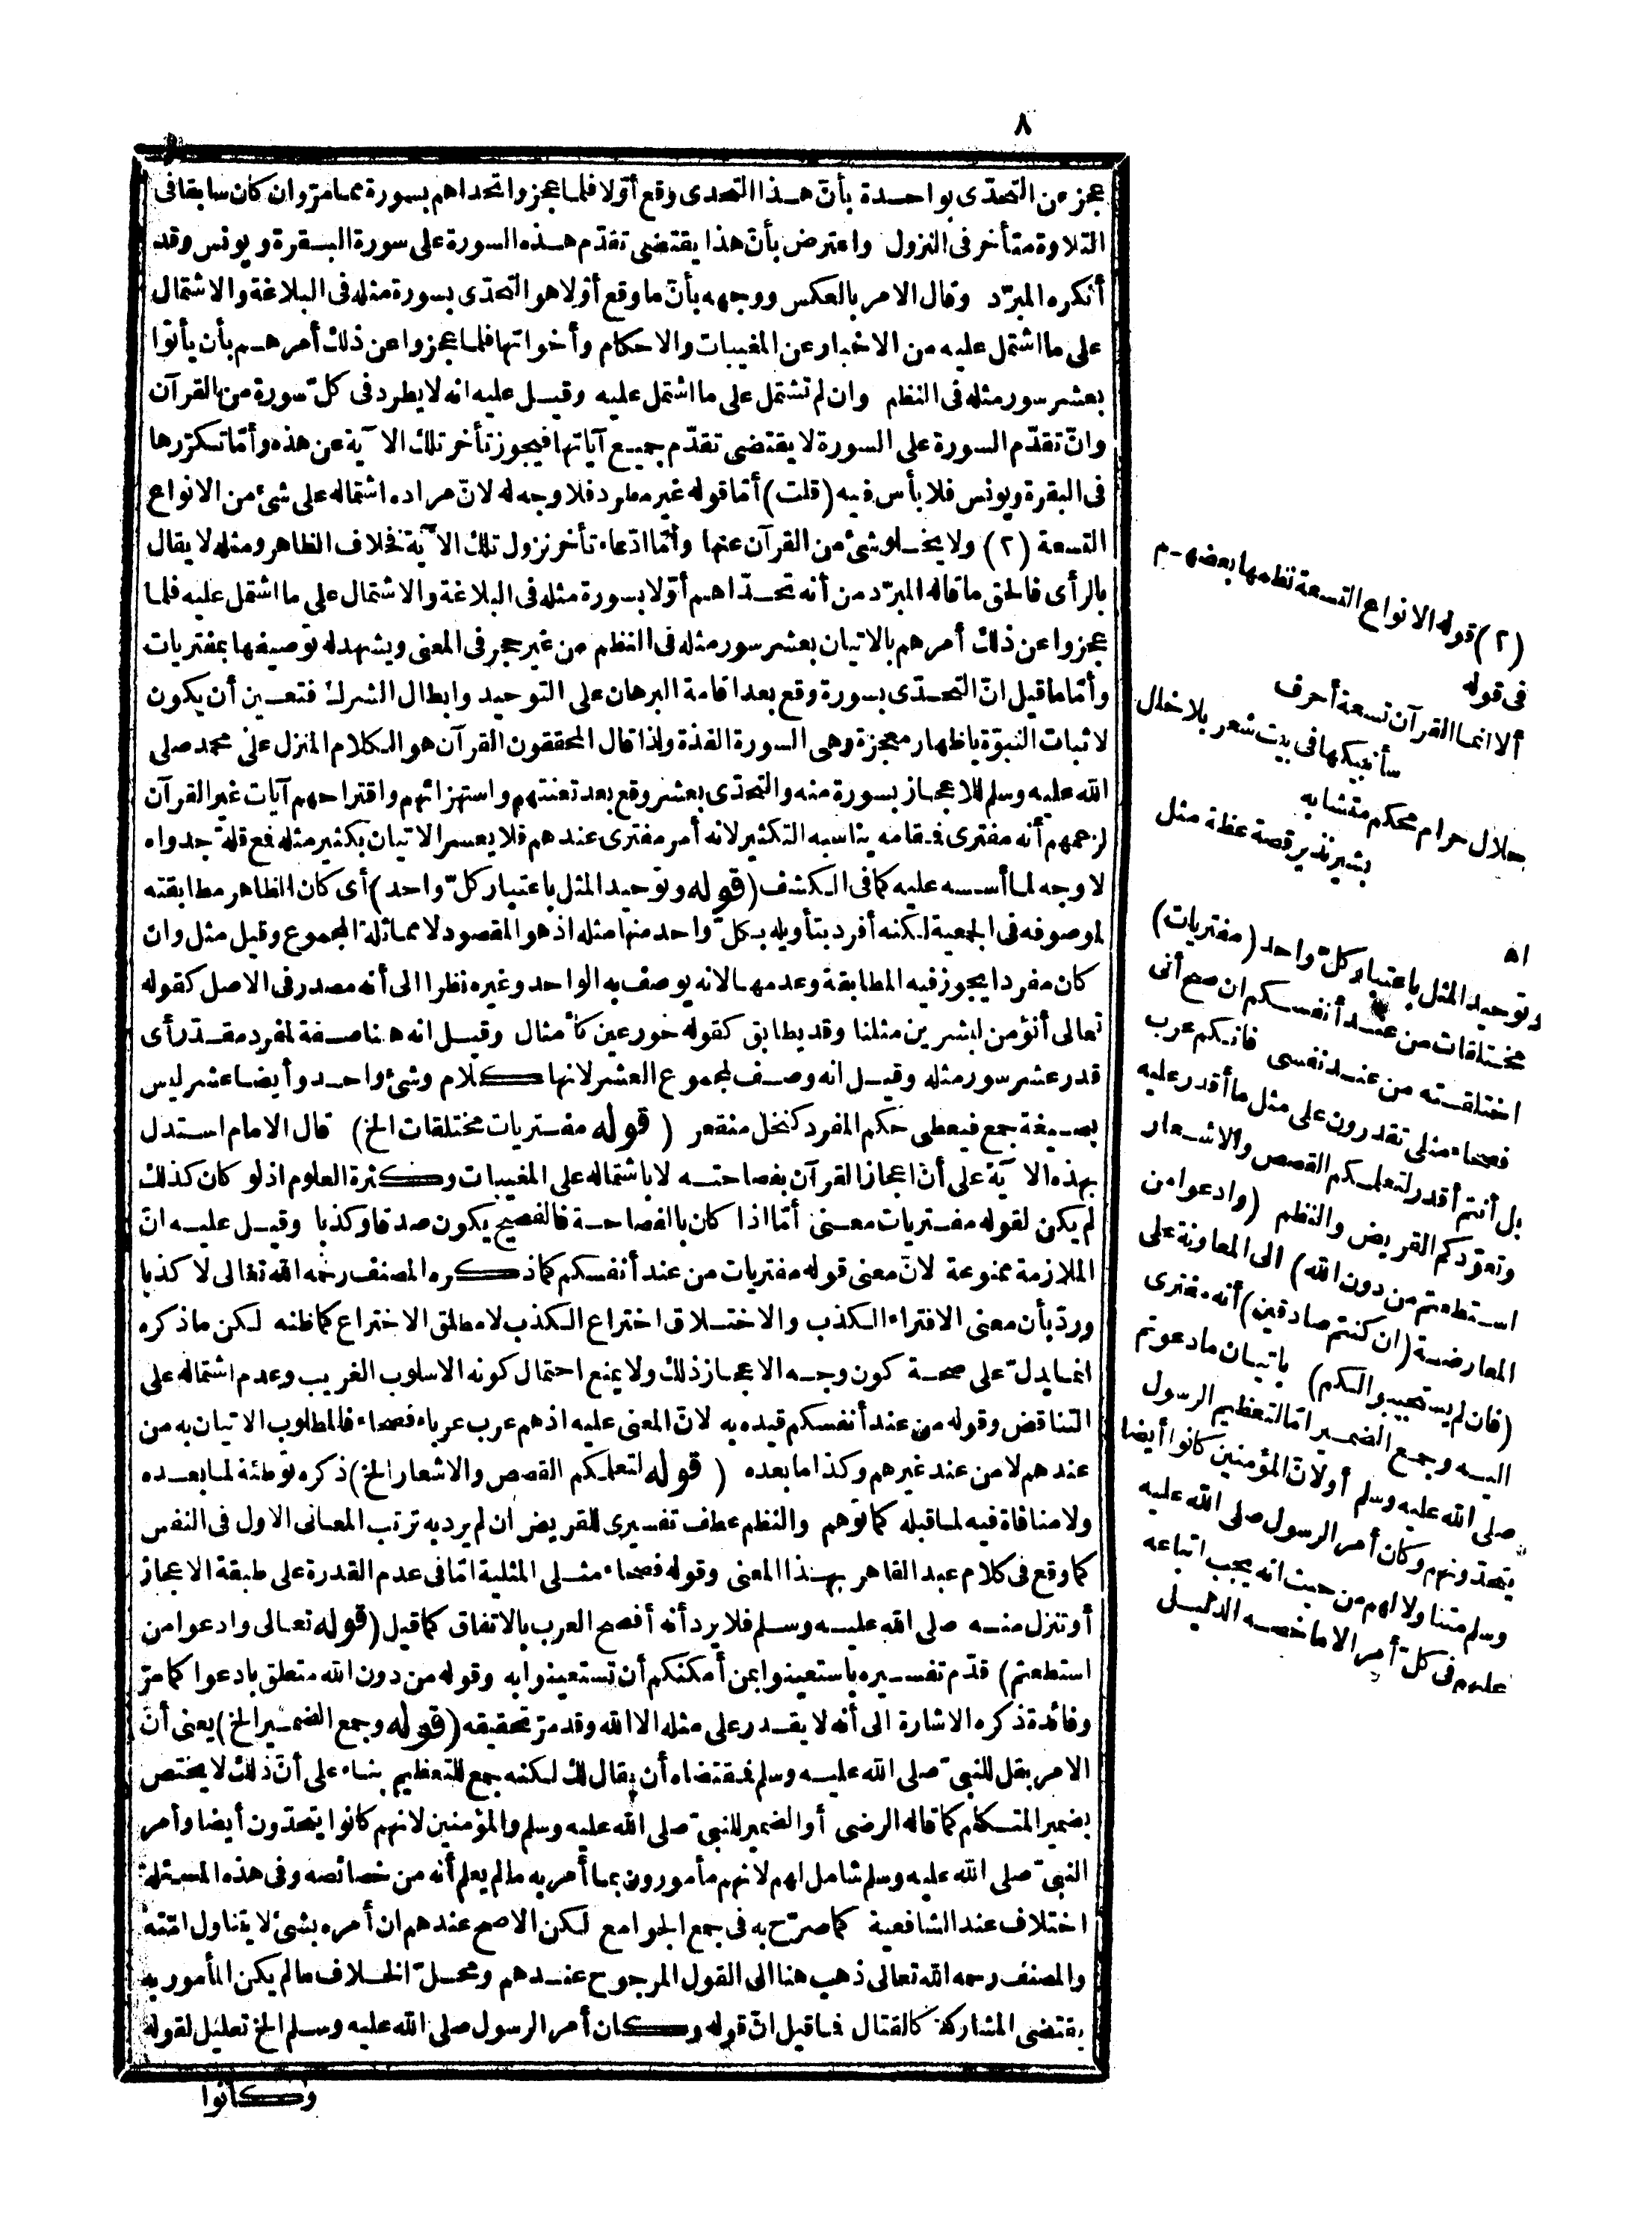 ٨
عجز عن التحدّى بواحدة بأنّ هذا التحدى وقع أوّلا فلما عجزوا تحداهم بسورة مما مرّ وان كان سابقا فى
التلاوة متأخر فى النزول واعترض بأنّ هذا يقتضى تقدّم هذه السورة على سورة البقرة ويونس وقد
أنكره المبرّد وقال الامر بالعكس ووجهه بأنّ ما وقع أوّلا هو التحدّى بسورة مثله فى البلاغة والاشتمال
على ما اشتمل عليه من الاخبار عن المغيبات والاحكام وأخواتها فلما عجزوا عن ذلك أمرهم بأن يأتوا
بعشر سور مثله فى النظم وان لم تشتمل على ما اشتمل عليه وقيل عليه انه لا يطرد فى كلّ سورة من القرآن
وانّ تقدّم السورة على السورة لا يقتضى تقدّم جميع آياتها فيجوز تأخر تلك الآية عن هذه وأمّا تكرّرها
فى البقرة ويونس فلا بأس فيه (قلت) أمّا قوله غير مطرد فلا وجه له لانّ مراده اشتماله على شئ من الانواع
التسعة (٢) ولا يخلو شئ من القرآن عنها وأمّا ادّعاء تأخر نزول تلك الآية فخلاف الظاهر ومثله لا يقال
بالرأى فالحق ما قاله المبرّد من أنه تحدّاهم أوّلا بسورة مثله فى البلاغة والاشتمال على ما اشتمل عليه فلما
عجزوا عن ذلك أمرهم بالاتيان بعشر سور مثله فى النظم من غير حجر فى المعنى ويشهد له توصيفها بمفتريات
وأمّا ما قيل انّ التحدّى بسورة وقع بعد اقامة البرهان على التوحيد وابطال الشرك فتعين أن يكون
لاثبات النبوّة باظهار معجزة وهى السورة الفذة ولذا قال المحققون القرآن هو الكلام المنزل على محمد صلى
الله عليه وسلم للاعجاز بسورة منه والتحدّى بعشر وقع بعد تعنتهم واستهزائهم واقتراحهم آيات غير القرآن
لزعمهم أنه مفترى فمقامه يناسبه التكثير لانه أمر مفترى عندهم فلا يعسر الاتيان بكثير مثله فمع قلة جدواه
لا وجه لما أسسه عليه كما فى الكشف (قوله وتوحيد المثل باعتبار كلّ واحد) أى كان الظاهر مطابقته
لموصوفه فى الجمعية لكنه أفرد بتأويله بكلّ واحد منها مثله اذ هو المقصود لا مماثلة المجموع وقيل مثل وان
كان مفردا يجوز فيه المطابقة وعدمها لانه يوصف به الواحد وغيره نظرا الى أنه مصدر فى الاصل كقوله
تعالى أنؤمن لبشرين مثلنا وقد يطابق كقوله حور عين كأمثال وقيل انه هنا صفة لمفرد مقدّر أى
قدر عشر سور مثله وقيل انه وصف لمجموع العشر لانها كلام وشئ واحد وأيضا عشر ليس
بصيغة جمع فيعطى حكم المفرد كنخل منقعر (قوله مفتريات مختلقات الخ) قال الامام استدل
بهذه الآية على أنّ اعجاز القرآن بفصاحته لا باشتماله على المغيبات وكثرة العلوم اذ لو كان كذلك
لم يكن لقوله مفتريات معنى أمّا اذا كان بالفصاحة فالفصيح يكون صدقا وكذبا وقيل عليه انّ
الملازمة ممنوعة لانّ معنى قوله مفتريات من عند أنفسكم كما ذكره المصنف رحمه الله تعالى لا كذبا
وردّ بأن معنى الافتراء الكذب والاختلاق اختراع الكذب لا مطلق الاختراع كما ظنه لكن ما ذكره
انما يدلّ على صحة كون وجه الاعجاز ذلك ولا يمنع احتمال كونه الاسلوب الغريب وعدم اشتماله على
التناقض وقوله من عند أنفسكم قيده به لانّ المعنى عليه اذهم عرب عرباء فصحاء فالمطلوب الاتيان به من
عندهم لا من عند غيرهم وكذا ما بعده (قوله لتعلمكم القصص والاشعار الخ) ذكره توطئة لما بعده
ولا منافاة فيه لما قبله كما توهم والنظم عطف تفسيرى للقريض ان لم يرد به ترتب المعانى الاول فى النفس
كما وقع فى كلام عبد القاهر بهذا المعنى وقوله فصحاء مثلى المثلية امّا فى عدم القدرة على طبقة الاعجاز
أو تنزل منه صلى الله عليه وسلم فلا يرد أنه أفصح العرب بالاتفاق كما قيل (قوله تعالى وادعوا من
استطعتم) قدّم تفسيره باستعينوا بمن أمكنكم أن تستعينوا به وقوله من دون الله متعلق بادعوا كما مرّ
وفائدة ذكره الاشارة الى أنه لا يقدر على مثله الا الله وقد مرّ تحقيقه (قوله وجمع الضمير الخ) يعنى أنّ
الامر بقل للنبىّ صلى الله عليه وسلم فمقتضاه أن يقال لك لكنه جمع للتعظيم بناء على أنّ ذلك لا يختص
بضمير المتكلم كما قاله الرضى أو الضمير للنبىّ صلى الله عليه وسلم والمؤمنين لانهم كانوا يتحدّون أيضا وأمر
النبىّ صلى الله عليه وسلم شامل لهم لانهم مأمورون بما أمر به ما لم يعلم أنه من خصائصه وفى هذه المسئلة
اختلاف عند الشافعية كما صرّح به فى جمع الجوامع لكن الاصح عندهم ان أمره بشئ لا يتناول امّته
والمصنف رحمه الله تعالى ذهب هنا الى القول المرجوح عندهم ومحلّ الخلاف ما لم يكن المأمور به
يقتضى المشاركة كالقتال فما قيل انّ قوله وكان أمر الرسول صلى الله عليه وسلم الخ تعليل لقوله
وكانوا
(٢) قوله الانواع التسعة نظمها بعضهم
فى قوله
ألا انما القرآن تسعة أحرف
سأنبيكها فى بيت شعر بلا خلل
حلال حرام محكم متشابه
بشير نذير قصة عظة مثل
اه
وتوحيد المثل باعتبار كلّ واحد (مفتريات)
مختلقات من عند أنفسكم ان صح أنى
اختلقته من عند نفسى فانكم عرب
فصحاء مثلى تقدرون على مثل ما أقدر عليه
بل أنتم أقدر لتعلمكم القصص والاشعار
وتعوّدكم القريض والنظم (وادعوا من
استطعتم من دون الله) الى المعاونة على
المعارضة (ان كنتم صادقين) أنه مفترى
(فان لم يستجيبوا لكم) باتيان ما دعوتم
اليه وجمع الضمير امّا لتعظيم الرسول
صلى الله عليه وسلم أو لانّ المؤمنين كانوا أيضا
يتحدّونهم وكان أمر الرسول صلى الله عليه
وسلم متناولا لهم من حيث انه يجب اتباعه
عليهم فى كلّ أمر الا ما خصه الدليل